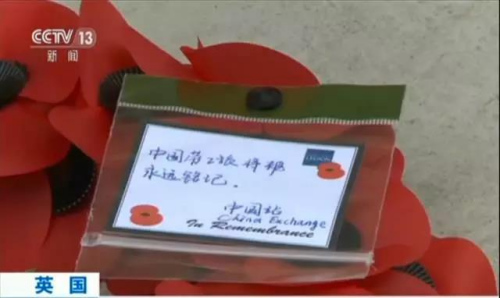 CCTV 13
新闻
LEGION
中国劳工旅将被
永远铭记.
中国站
China Exchange
In Remembrance
英国